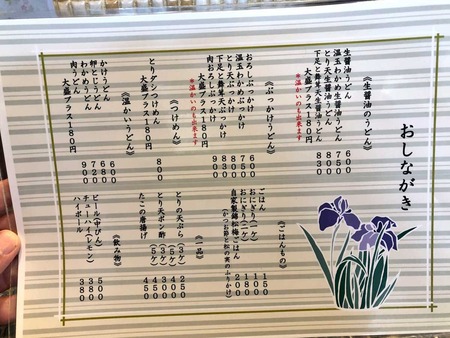 おしながき
《生醤油のうどん》
生醤油うどん 600
温玉わかめ生醤油うどん 750
とり天生醤油うどん 800
下足と舞茸天生醤油うどん 830
大盛プラス180円
※温かいのも出来ます
《ぶっかけうどん》
おろしぶっかけ
温玉わかめぶっかけ 750
とり天ぶっかけ 800
下足と舞茸天ぶっかけ 830
肉おろしぶっかけ
大盛プラス180円
※温かいのも出来ます
《つけめん》
とりダシつけめん 800
大盛プラス180円
《温かいうどん》
かけうどん 600
卵とじうどん 680
わかめうどん 720
肉うどん 900
大盛プラス180円
《ごはんもの》
ごはん 150
おにぎり(一ケ) 110
おにぎり(二ケ) 200
自家製錦松梅ごはん 200
(かつお節と松の実のふりかけ)
《一品》
とりの天ぷら(3ケ) 250
(5ケ) 400
とり天ポン酢(5ケ) 450
たこの唐揚げ 450
《飲み物》
ビール(中びん) 500
チューハイ(レモン) 380
ハイボール 380